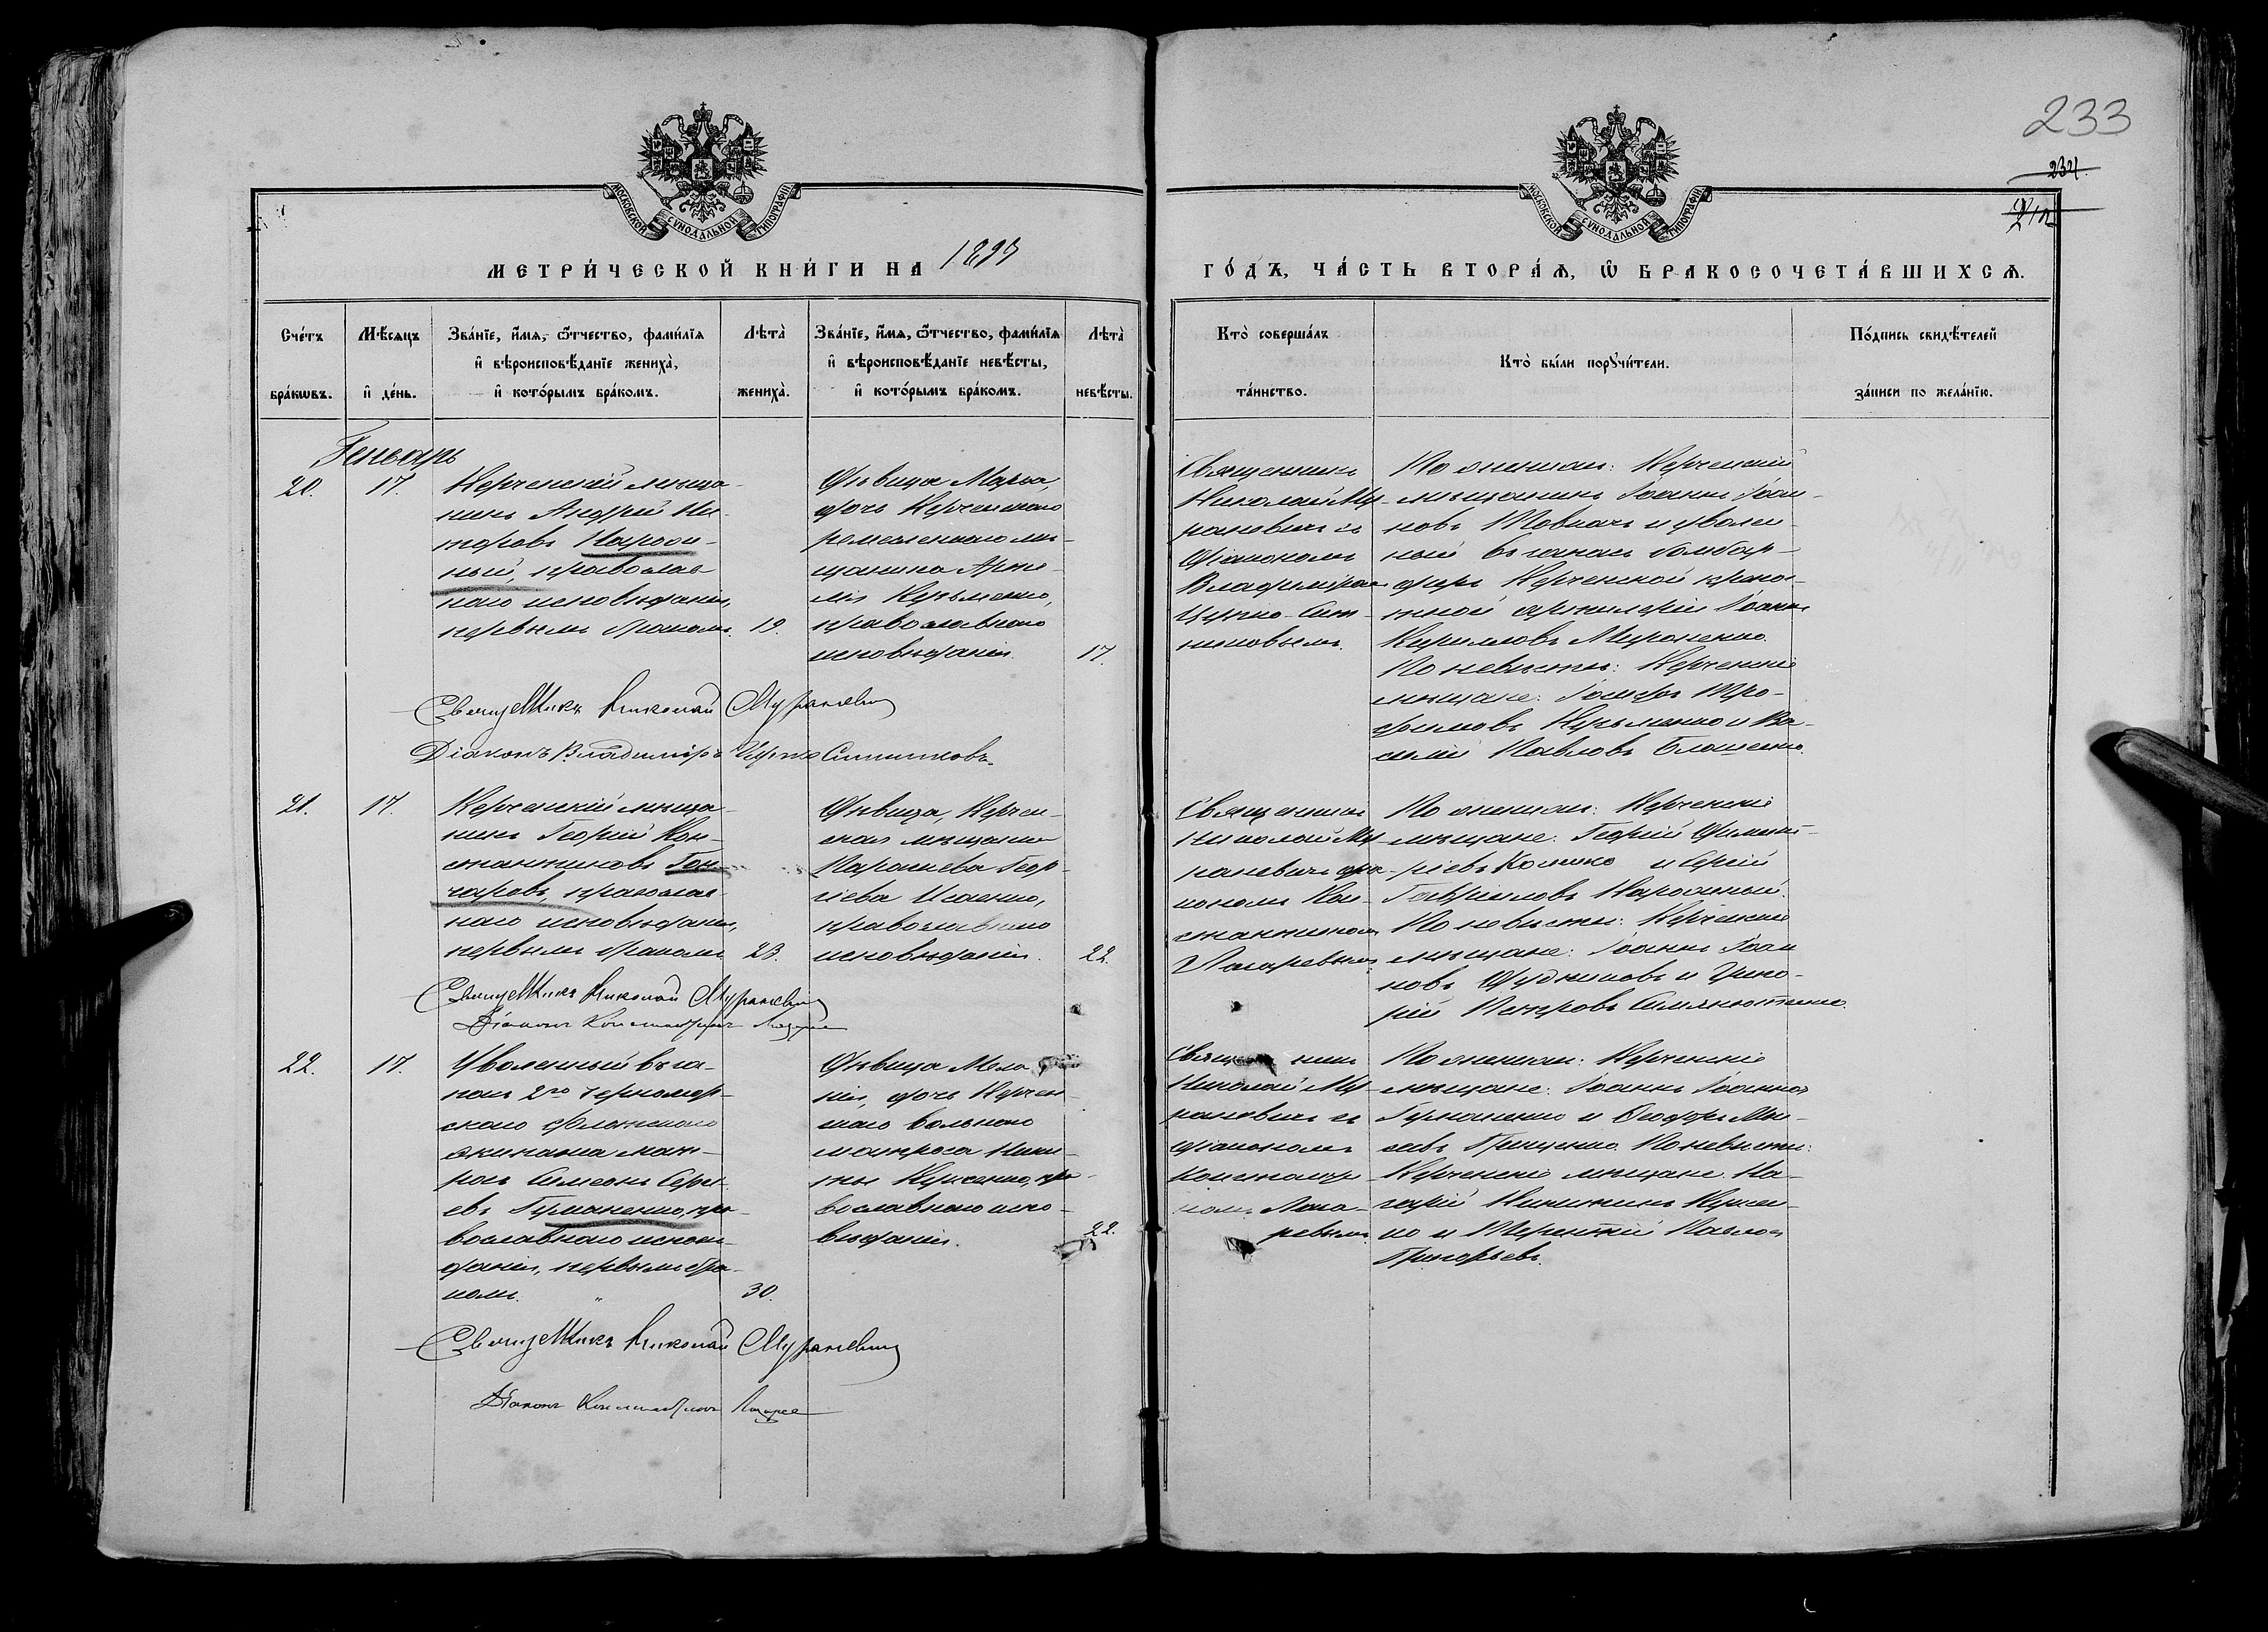 233
234
МОСКОВСКОЙ СѴНОДАЛЬНОЙ ТИПОГРАФІИ
МОСКОВСКОЙ СѴНОДАЛЬНОЙ ТИПОГРАФІИ
МЕТРИ́ЧЕСКОЙ КНИ́ГИ НА
ГО́ДЪ, ЧА́СТЬ ВТОРА́Ѧ, Ѽ БРАКОСОЧЕТА́ВШИХСѦ.
Сче́тъ бра́кѡвъ.
Мѣ́сѧцъ и҆ де́нь.
Зва́нїе, и҆́мѧ, ѻ҆́тчество, фами́лїѧ
и҆ вѣроисповѣ́данїе жениха̀,
и҆ кото́рымъ бра́комъ.
Лѣ́та жениха̀.
Зва́нїе, и҆́мѧ, ѻ҆́тчество, фами́лїѧ
и҆ вѣроисповѣ́данїе невѣ́сты,
и҆ кото́рымъ бра́комъ.
Лѣ́та невѣ́сты.
Кто̀ соверша́лъ та́инство.
Кто̀ бы́ли порꙋчи́тели.
По́дпись свидѣ́телей за́писи по жела́нїю.
Генварь
20.
17.
Керченскій мѣща-
нинъ Андрей Ни-
праваслав-
наго исповѣданія,
первымъ бракомъ.
19.
Дѣвица Марѳа,
дочь Керченскаго
ремесленнаго мѣ-
щанина Арте-
мія Кузьменко,
православнаго
исповѣданія.
17.
Священникъ
Николай Му-
раневичъ съ
діакономъ
По женихѣ: Керченскій
мѣщанинъ Іоаннъ Іоан-
новъ Товкачъ и уволен-
ный въ запасъ бомбар-
диръ Керченской крѣпос-
тной артиллеріи Іоаннъ
Кирилловъ Мироненко.
По невѣстѣ: Керченскіе
мѣщане: Іосифъ Тро-
фимовъ Кузьменко и Ва-
силій Павловъ
Священникъ Николай Мураневичъ
Діаконъ Владиміръ
21.
17.
Керченскій мѣща-
нинъ Георгій Кон-
стантиновъ Гон-
чаровъ, православ-
наго исповѣданія,
первымъ бракомъ
23.
Дѣвица, Керчен-
ская мѣщанка
Параскева Геор-
гіева Исаенко,
православнаго
исповѣданія.
22.
Священникъ
Николай Му-
раневичъ съ діа-
кономъ Кон-
стантиномъ
Лазаревымъ.
По женихѣ: Керченскіе
мѣщане: Георгій Димит-
ріевъ Колшко и Сергій
По невѣстѣ: Керченскіе
мѣщане: Іоаннъ Іоан-
новъ Дудниковъ и Григо-
рій Петровъ
Священникъ Николай Мураневичъ
Діаконъ Константинъ Лазаревъ
22.
17.
Уволенный въ за-
пасъ 2го Черномор-
скаго флотскаго
экипажа мат-
росъ Симеонъ Сергі-
евъ Гумоненко, пра-
вославнаго исповѣ-
данія, первымъ бра-
комъ.
30.
Дѣвица Мела-
нія, дочь Керчен-
скаго вольнаго
матроса Ники-
ты Куценко, пра-
вославнаго испо-
вѣданія.
22.
Священникъ
Николай Му-
раневичъ съ
діакономъ
Константи-
номъ Лаза-
ревымъ.
По женихѣ: Керченскіе
мѣщане: Іоаннъ Іоанновъ
и Ѳеодоръ
Грищенко. По невѣстѣ:
Керченскіе мѣщане: На-
зарій Никитинъ Куцен-
ко и Терентій Павловъ
Григорьевъ.
Священникъ Николай Мураневичъ
Діаконъ Константинъ Лазаревъ